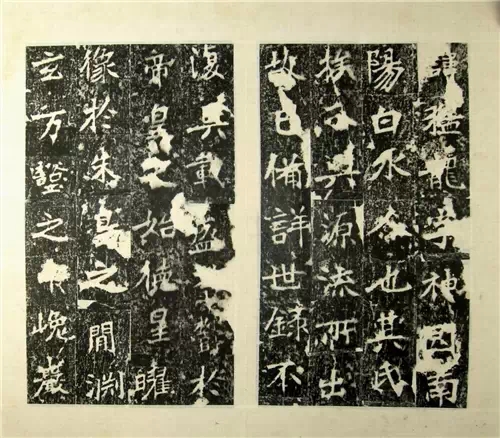 諱猛龍字神囧南
陽白水人也其氏
族分興源流所出
故已備詳世錄不
復具載盛蓄於
帝皇之始德星曜
像於朱鳥之間淵
玄万壑之中巖